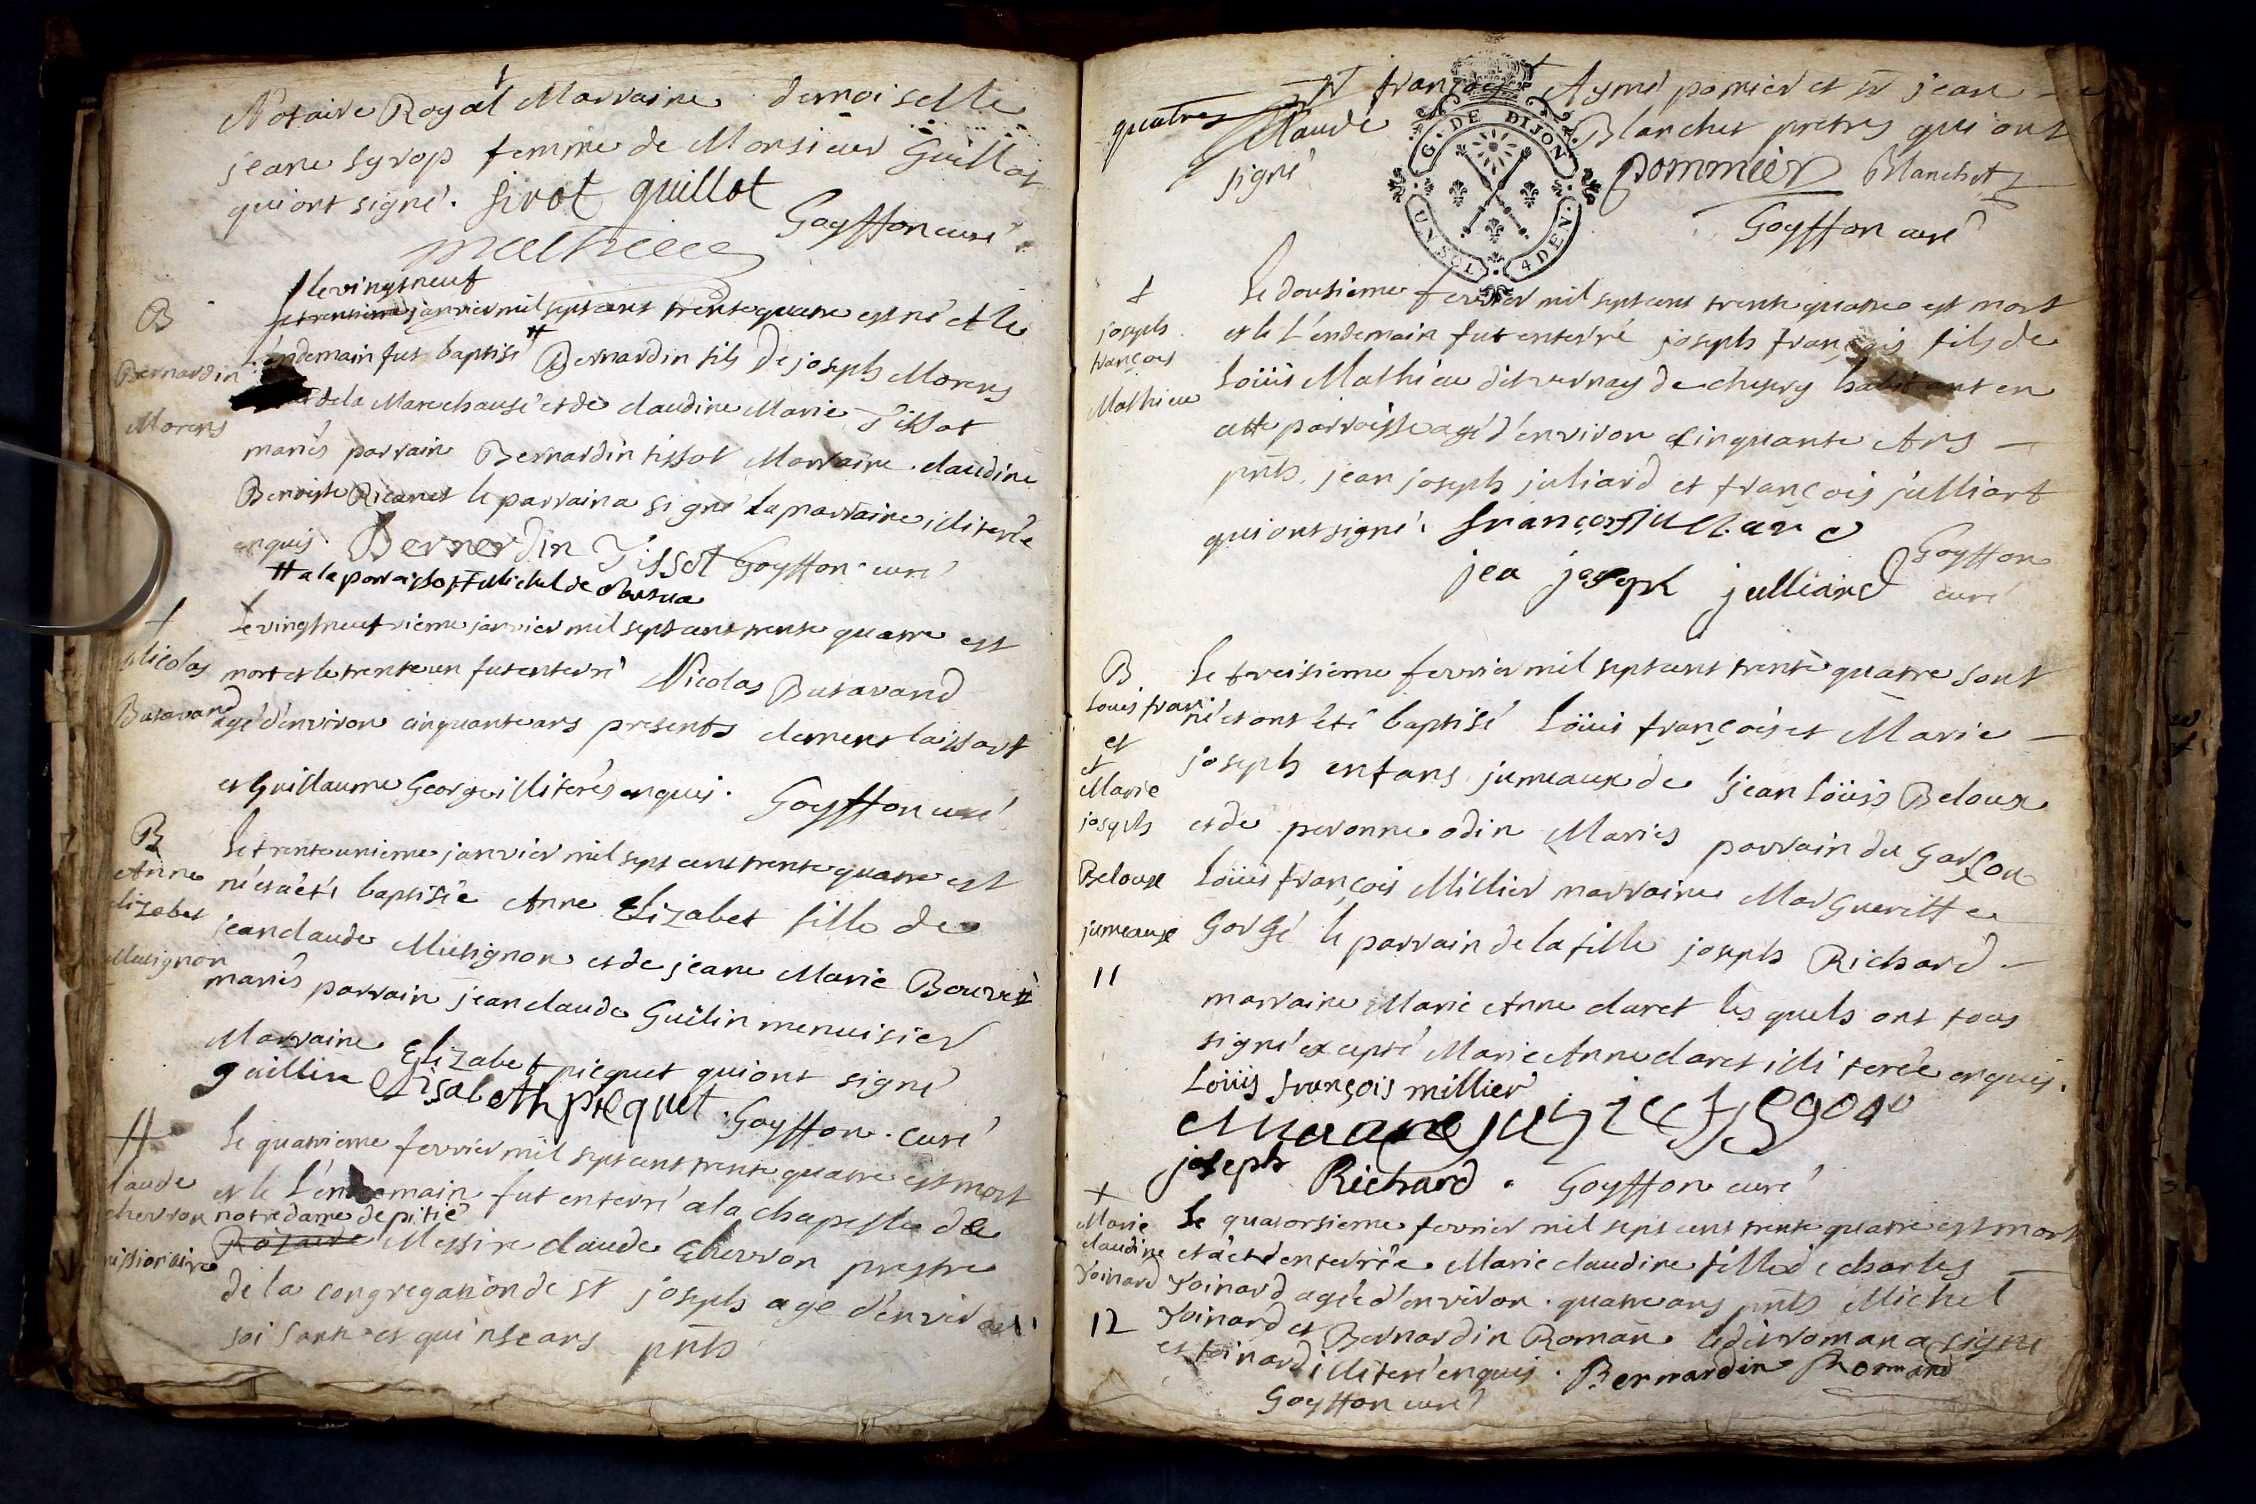 Notaire Royal Marraine demoiselle
jeane syrop femme de Monsieur Guillot
qui ont signé. sirot guillot
Goyffon curé
le vingtneuf
le trentieme janvier mil sept cent trente quatre est né et le
B
l'endemain fut baptisé # Bernardin fils de joseph Morens
Bernardin
de la Marechausé et de claudine Marie Tissot
Morens
mariés parrain Bernardin tissot Marraine claudine
Benoiste le parrain a signé la marraine iliterée
enquis. Bernerdin Tissot Goyffon curé
# a la parroisse St Michel de
†
le vingtneufvieme janvier mil sept cent trente quatre est
Nicolas
mort et le trente un fut enterré Nicolas Butavand
Butavand
agé d'environ cinquante ans presents clement laissart
et Guillaume George illiterés enquis. Goyffon curé
B
le trente unieme janvier mil sept cent trente quatre est
Anne
né et a été baptisée Anne Elizabet fille de
elizabet
jean claude Mutignon et de jeane Marie
Mutignon
mariés parrain jean claude Guilin menuisier
Marraine Elizabet picquet qui ont signé
guillin Elisabeth picquet. Goyffon. curé
le quatrieme fevrier mil sept cent trente quatre est mort
claude
et le l'endemain fut enterré a la chapelle de
chevron notre dame de pitié
Rosaire Messire claude Chevron prestre
missionaire
de la congregation de St joseph age d'environ
soisante et quinse ans pnts
quatre
Sr françois Aymé pomier et Sr jean
claude Blanchet pretres qui ont
signé pommier Blanchet
Goyffon curé
G. DE DIJON
UN SOL 4 DEN.
†
le dousieme fevrier mil sept cent trente quatre est mort
joseph
et le l'endemain fut enterré joseph françois fils de
françois
Loüis Mathieu dit vernay de habitant en
Mathieu
cette parroisse agé d'environ cinquante Ans
pnts. jean joseph juliard et françois julliart
qui ont signé. françois julliard
Goyffon
jea joseph julliard curé
B
le treisieme fevrier mil sept cent trente quatre sont
Louis fran
né et ont été baptisé Loüis françois et Marie
et
et
joseph enfans jumeaux de jean Loüis Beloux
Marie
joseph
et de peronne odin Mariés parrain du garçon
Beloux
Loüis françois Millier marraine Margueritte
jumeaux
Gorgé le parrain de la fille joseph Richard
11
marraine Marie Anne claret les quels ont tous
signé excepté Marie Anne claret iliterée enquis.
Loüis françois millier
joseph Richard. Goyffon curé
†
Marie
le quatorsieme fevrier mil sept cent trente quatre est mort
claudine
et a eté enterrée Marie claudine fille de charles
Voinard
Voinard agée d'environ quatre ans pnts Michel
12
Voinard et Bernardin Roman. ledit roman a signé
et voinard illiteré enquis. Bernardin Romand
Goyffon curé